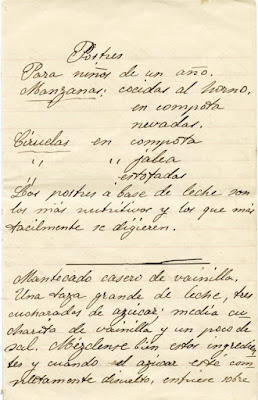 Postres
Para niños de un año.
Manzanas: cocidas al horno.
en compota
nevadas.
Ciruelas en compota
" " jalea
estofadas
Los postres à base de leche son
los más nutritivos y los que más
facilmente se digieren.
Mantecado casero de vainilla.
Una taza grande de leche, tres
cucharadas de azucar; media cu
charita de vainilla y un poco de
sal. Mézclense bien estos ingredien
tes y cuando el azúcar esté com
pletamente disuelto, enfriese sobre